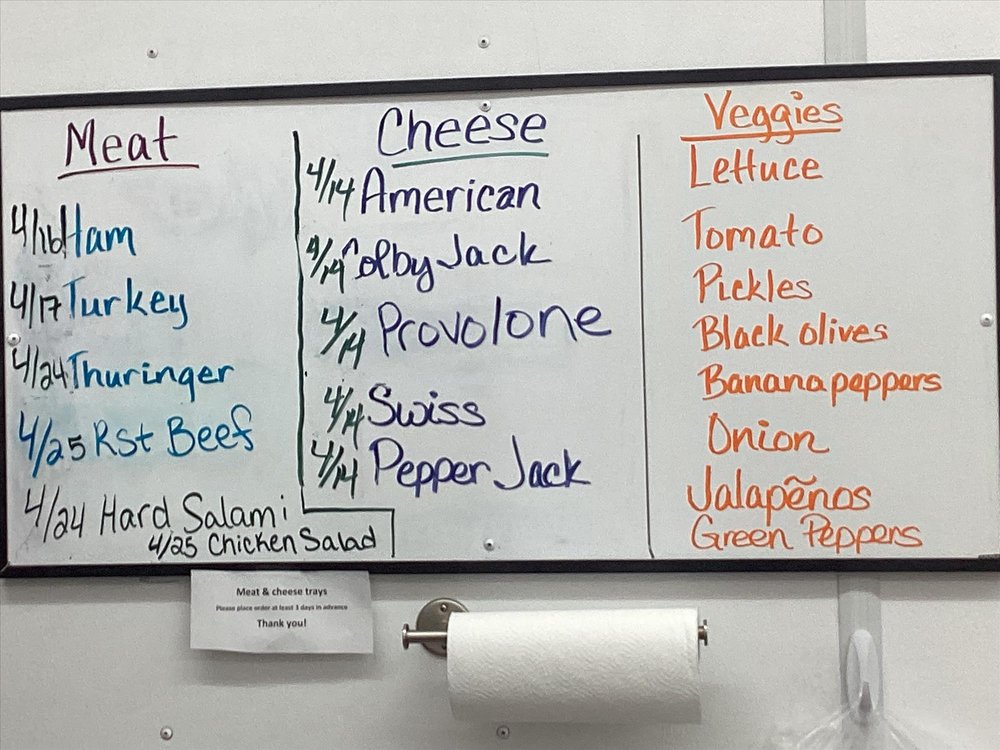 Meat
4/16 Ham
4/17 Turkey
4/24 Thuringer
4/25 Rst Beef
4/24 Hard Salami
4/25 Chicken Salad
Cheese
4/14 American
4/14 Colby Jack
4/14 Provolone
4/14 Swiss
4/14 Pepper Jack
Veggies
Lettuce
Tomato
Pickles
Black olives
Banana peppers
Onion
Jalapeños
Green Peppers
Meat & cheese trays
Please place order at least 3 days in advance
Thank you!